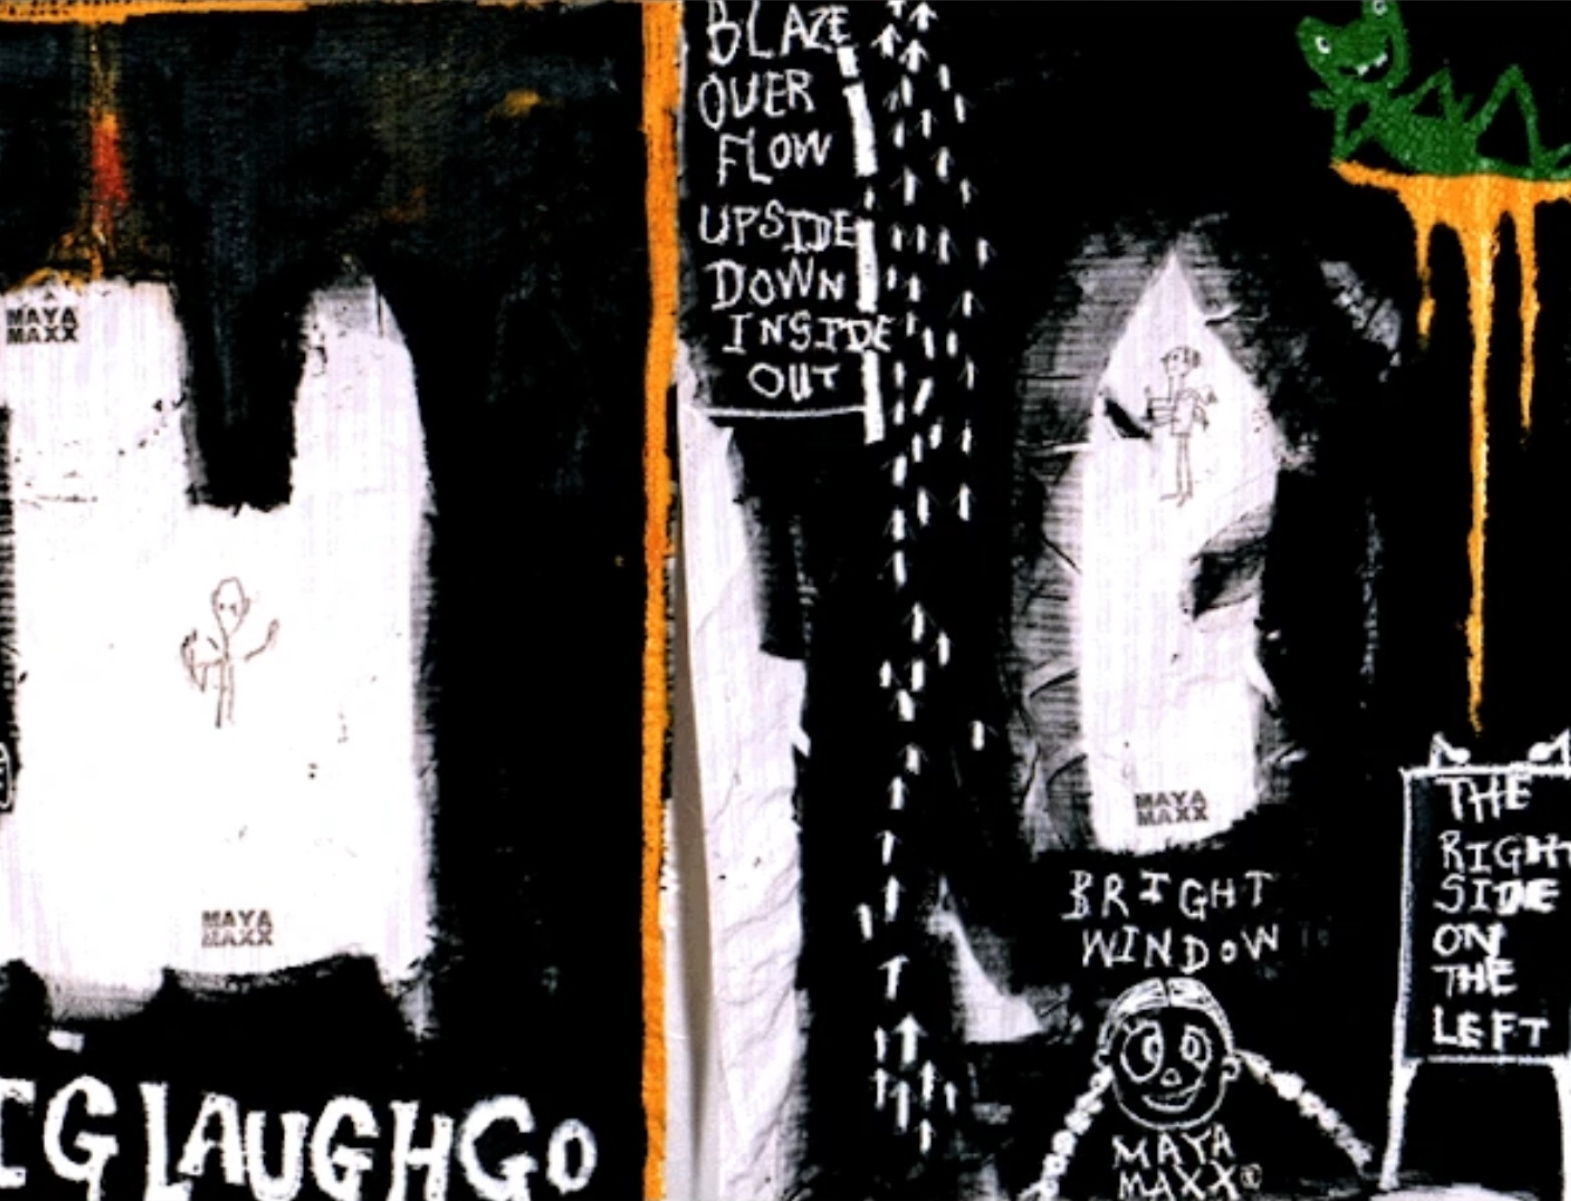 MAYA
MAXX
MAYA
MAXX
IG LAUGH GO
BLAZE
OVER
FLOW
UPSIDE
DOWN
INSIDE
OUT
MAYA
MAXX
BRIGHT
WINDOW
MAYA
MAXX®
THE
RIGHT
SIDE
ON
THE
LEFT